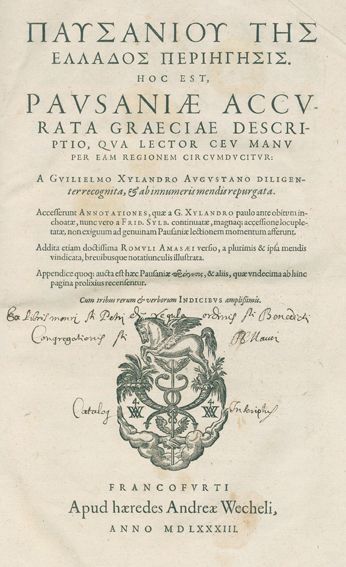 ΠΑΥΣΑΝΙΟΥ ΤΗΣ
ΕΛΛΑΔΟΣ ΠΕΡΙΗΓΗΣΙΣ.
HOC EST,
PAVSANIÆ ACCV-
RATA GRAECIAE DESCRI-
PTIO, QVA LECTOR CEV MANV
PER EAM REGIONEM CIRCVMDVCITVR:
A GVILIELMO XYLANDRO AVGVSTANO DILIGEN-
ter recognita, & ab innumeris mendis repurgata.
Accesserunt ANNOTATIONES, quæ a G. XYLANDRO paulo ante obitum in-
choatæ, nunc vero a FRID. SYLB. continuatæ, magnaq; accessione locuple-
tatæ, non exiguum ad genuinam Pausaniæ lectionem momentum afferunt.
Addita etiam doctissima ROMVLI AMASÆI versio, a plurimis & ipsa mendis
vindicata, breuibusque notatiunculis illustrata.
Appendice quoq; aucta est hæc Pausaniæ & aliis, quæ vndecima ab hinc
pagina prolixius recensentur.
Cum tribus rerum & verborum INDICIBVS amplissimis.
Ex Libris monrj sti Petri ordinis sti Benedicti
Congregationis sti Mauri
Catalog Inscriptus
FRANCOFVRTI
Apud hæredes Andreæ Wecheli,
ANNO MDLXXXIII.